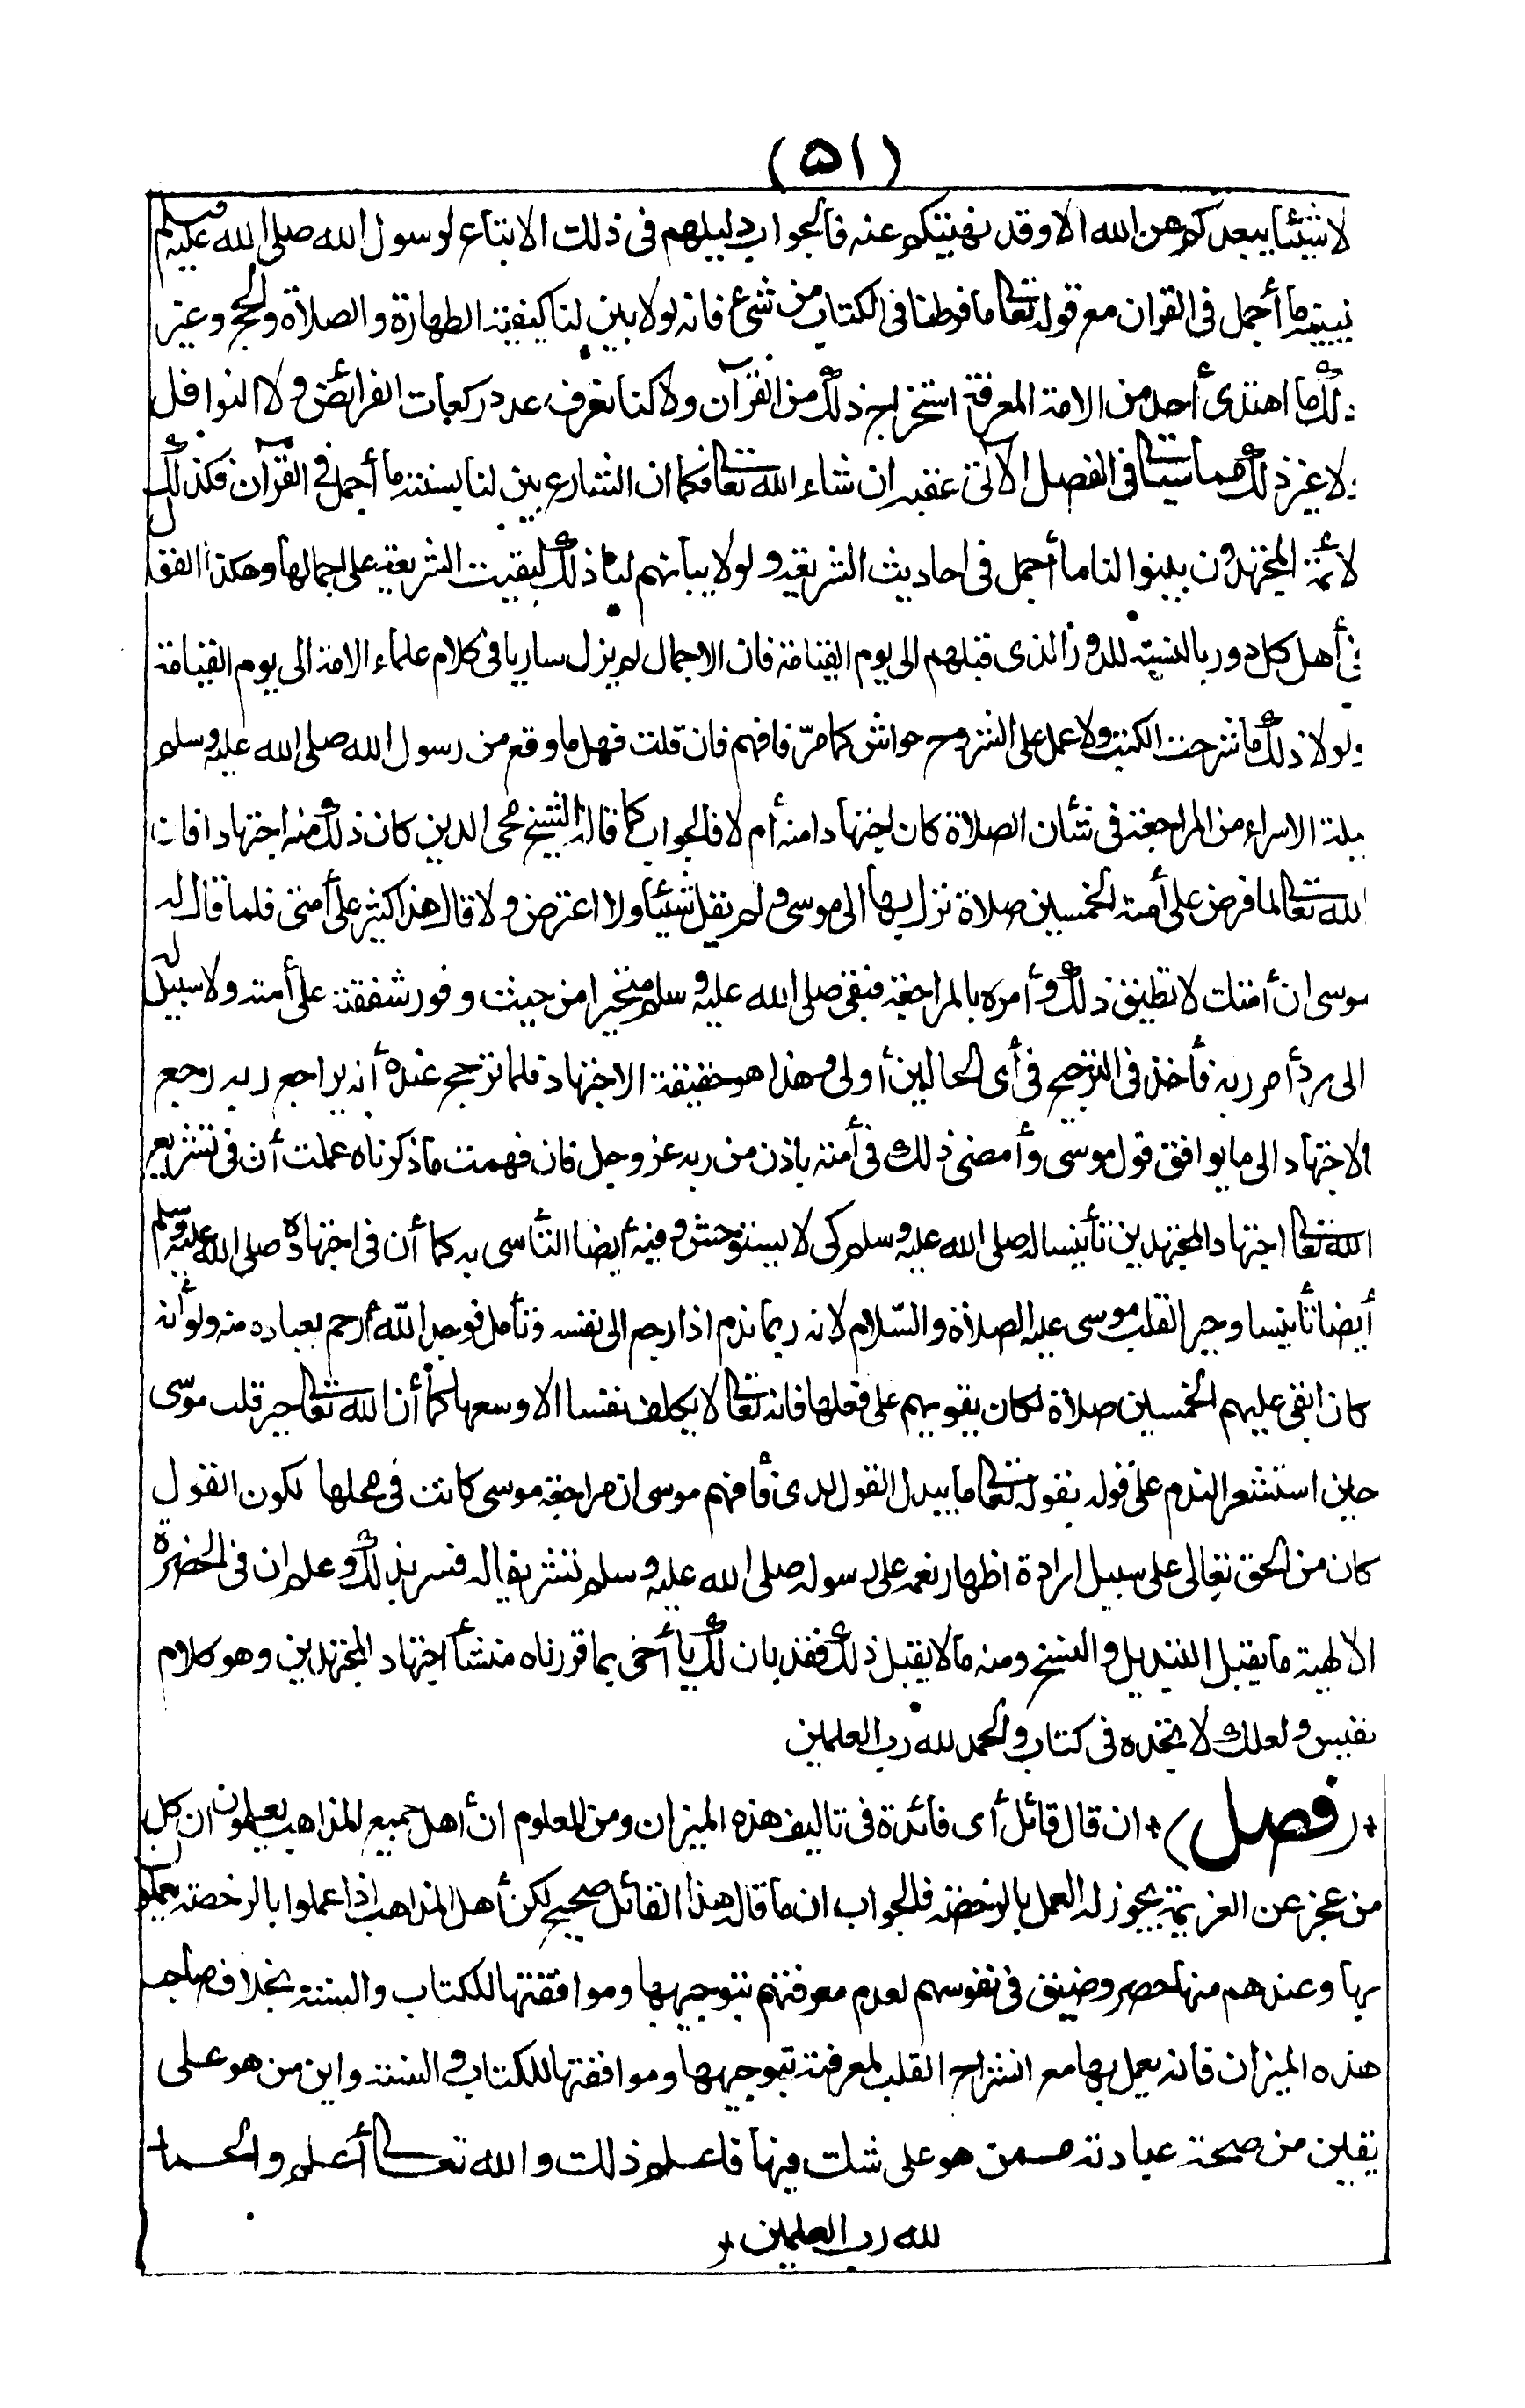 (٥١)
لا شيئا يبعدكم عن الله الا وقد نهيتكم عنه فالجواب دليلهم فى ذلك الاتباع لرسول الله صلى الله عليه وسلم
تبيينه ما أجمل فى القران مع قوله تعالى ما فرطنا فى الكتاب من شئ فانه لولا بين لنا كيفية الطهارة والصلاة والحج وغير
ذلك ما اهتدى أحد من الامة لمعرفة استخراج ذلك من القرآن ولا كنا نعرف عدد ركعات الفرائض ولا النوافل
ولا غير ذلك مما سيأتى فى الفصل الآتى عقبه ان شاء الله تعالى فكما ان الشارع بين لنا بسنته ما أجمل فى القرآن فكذلك
لائمة المجتهدون بينوا لنا ما أجمل فى احاديث الشريعة ولولا بيانهم لنا ذلك لبقيت الشريعة على اجمالها وهكذا القول
فى أهل كل دور بالنسبة للدور الذى قبلهم الى يوم القيامة فان الاجمال لم يزل ساريا فى كلام علماء الامة الى يوم القيامة
ولولا ذلك ما شرحت الكتب ولا عمل على الشروح حواش كما مرّ فافهم فان قلت فهل ما وقع من رسول الله صلى الله عليه وسلم
ليلة الاسراء من المراجعة فى شان الصلاة كان اجتهادا منه أم لا فالجواب كما قاله الشيخ محى الدين كان ذلك منه اجتهادا فان
الله تعالى لما فرض على أمته الخمسين صلاة نزل بها الى موسى ولم يقل شيئا ولا اعترض ولا قال هذا كثير على أمتى فلما قال له
موسى ان أمتك لا تطيق ذلك وأمره بالمراجعة فبقى صلى الله عليه وسلم متحيرا من حيث وفور شفقته على أمته ولا سبيل له
الى رد أمر ربه فأخذ فى الترجيح فى أى الحالين أولى وهذا هو حقيقة الاجتهاد فلما ترجح عنده أنه يراجع ربه رجع
بالاجتهاد الى ما يوافق قول موسى وأمضى ذلك فى أمته باذن من ربه عز وجل فان فهمت ما ذكرناه علمت أن فى تشريع
الله تعالى اجتهاد المجتهدين تأنيسا له صلى الله عليه وسلم كى لا يستوحش وفيه أيضا التأسى به كما أن فى اجتهاده صلى الله عليه وسلم
أيضا تأنيسا وجبرا لقلب موسى عليه الصلاة والسّلام لانه ربما ندم اذا رجع الى نفسه وتأمل فوجد اللّه أرحم بعباده منه ولو أنه
كان ابقى عليهم الخمسين صلاة لكان يقويهم على فعلها فانه تعالى لا يكلف نفسا الا وسعها كما أن الله تعالى جبر قلب موسى
حين استشعر الندم على قوله بقوله تعالى ما يبدل القول لدى فأفهم موسى ان مراجعة موسى كانت فى محلها لكون القول
كان من الحق تعالى على سبيل ارادة اظهار نعمه على رسوله صلى الله عليه وسلم تشريفا له فسر بذلك وعلم ان فى الحضرة
الالهية ما يقبل التبديل والنسخ ومنه ما لا يقبل ذلك فقد بان لك يا أخى بما قررناه منشأ اجتهاد المجتهدين وهو كلام
نفيس ولعلك لا تجده فى كتاب والحمد لله رب العلمين
(فصل) ان قال قائل أى فائدة فى تاليف هذه الميزان ومن المعلوم ان أهل جميع المذاهب يعلمون ان كل
من عجز عن العزيمة يجوز له العمل بالرخصة فالجواب ان ما قاله هذا القائل صحيح لكن أهل المذاهب اذا عملوا بالرخصة يعملون
بها وعندهم منها حصر وضيق فى نفوسهم لعدم معرفتهم بتوجيهها وموافقتها للكتاب والسنة بخلاف صاحب
هذه الميزان فانه يعمل بها مع انشراح القلب لمعرفته بتوجيهها وموافقتها للكتاب والسنة واين من هو على
يقين من صحة عبادته ممن هو على شك فيها فاعلم ذلك والله تعالى أعلم والحمد
لله رب العلمين